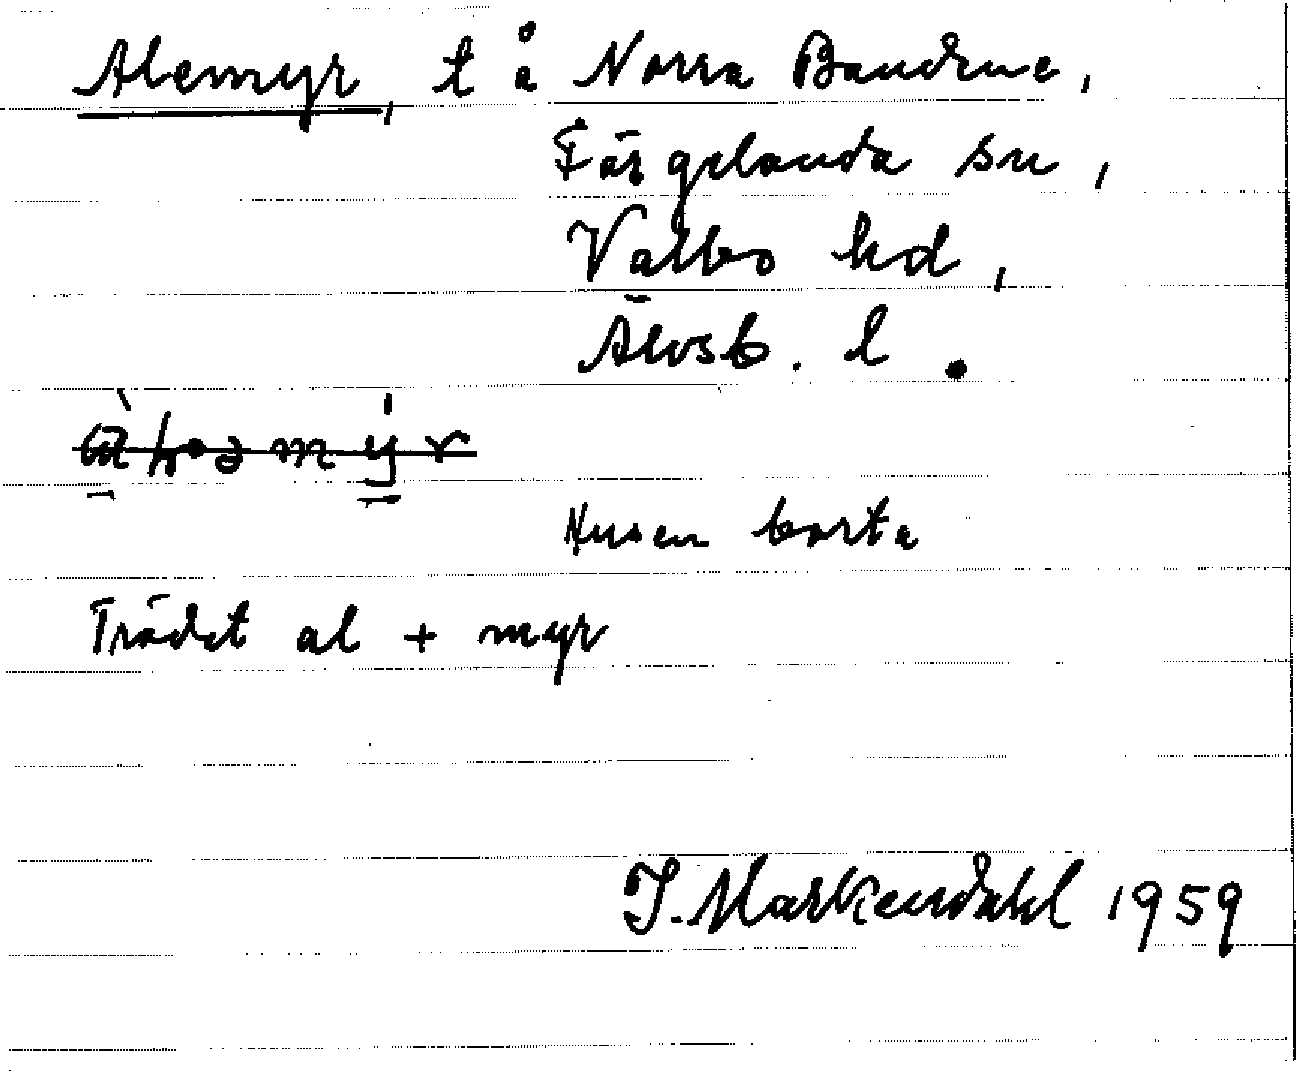 Alemyr, t å Norra Bandene,
Färgelanda sn,
Valbo hd,
Älvsb. l.
Husen borta
Trädet al + myr
J. Markendahl 1959